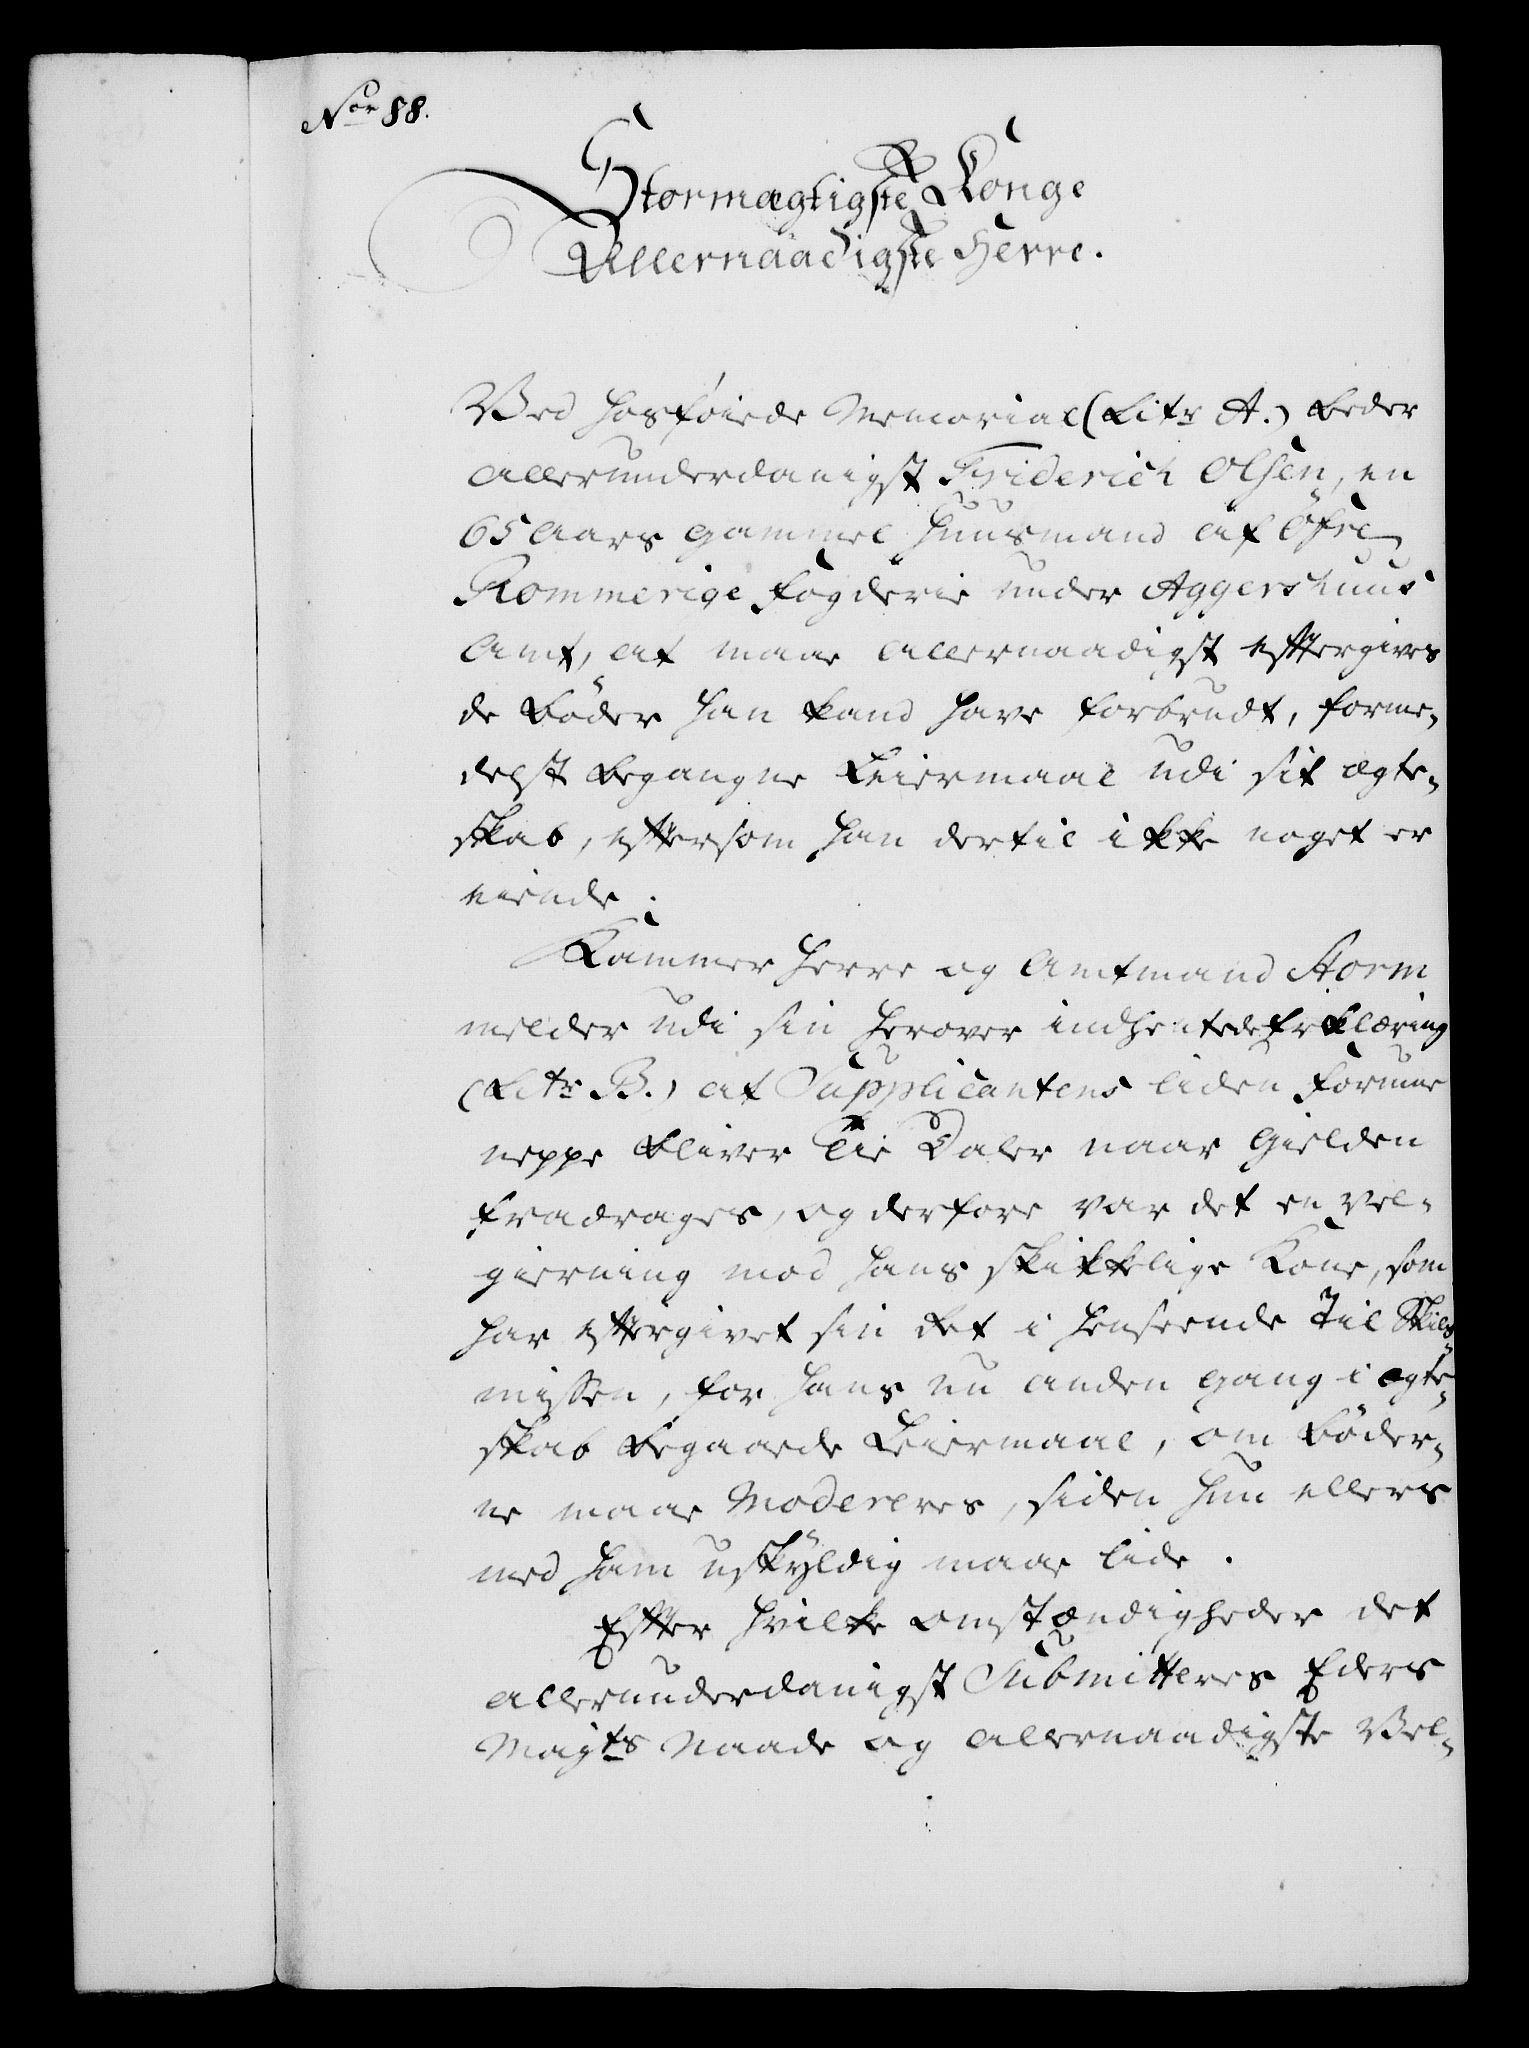 Nor 88.
Stormægtigste Konge
Allernaadigste Herre.
Ved hosföiede Memorial (Litr A.) beder
allerunderdanigst Friderich Olsen, en
65 Aars gammel Huusmand af Öfre
Rommerige Fogderie under Aggershuus
Amt, at maae allernaadigst eftergives
de Böder han kand have forbrudt, forme-
delst begangne Leiermaal udi sit ægte-
skab, eftersom han dertil ikke noget er
eiende.
Kammer Herre og Amtmand Storm
melder udi sin herover indhentede Erklæring
(Litr B.) at Supplicantens liden Formue
neppe bliver Tie Daler naar Gielden
fradrages, og derfore var det en vel-
gierning mod hans skikkelige Kone, som
har eftergivet sin Ret i henseende til Skils-
missen, for hans nu anden gang i ægte-
skab begaaede Leiermaal, om Böder-
ne maae Modereres, siden hun ellers
med ham uskyldig maae lide.
Efter hvilke omstændigheder det
allerunderdanigst Submitteres Eders
Maj:ts Naade og allernaadigste Vel-